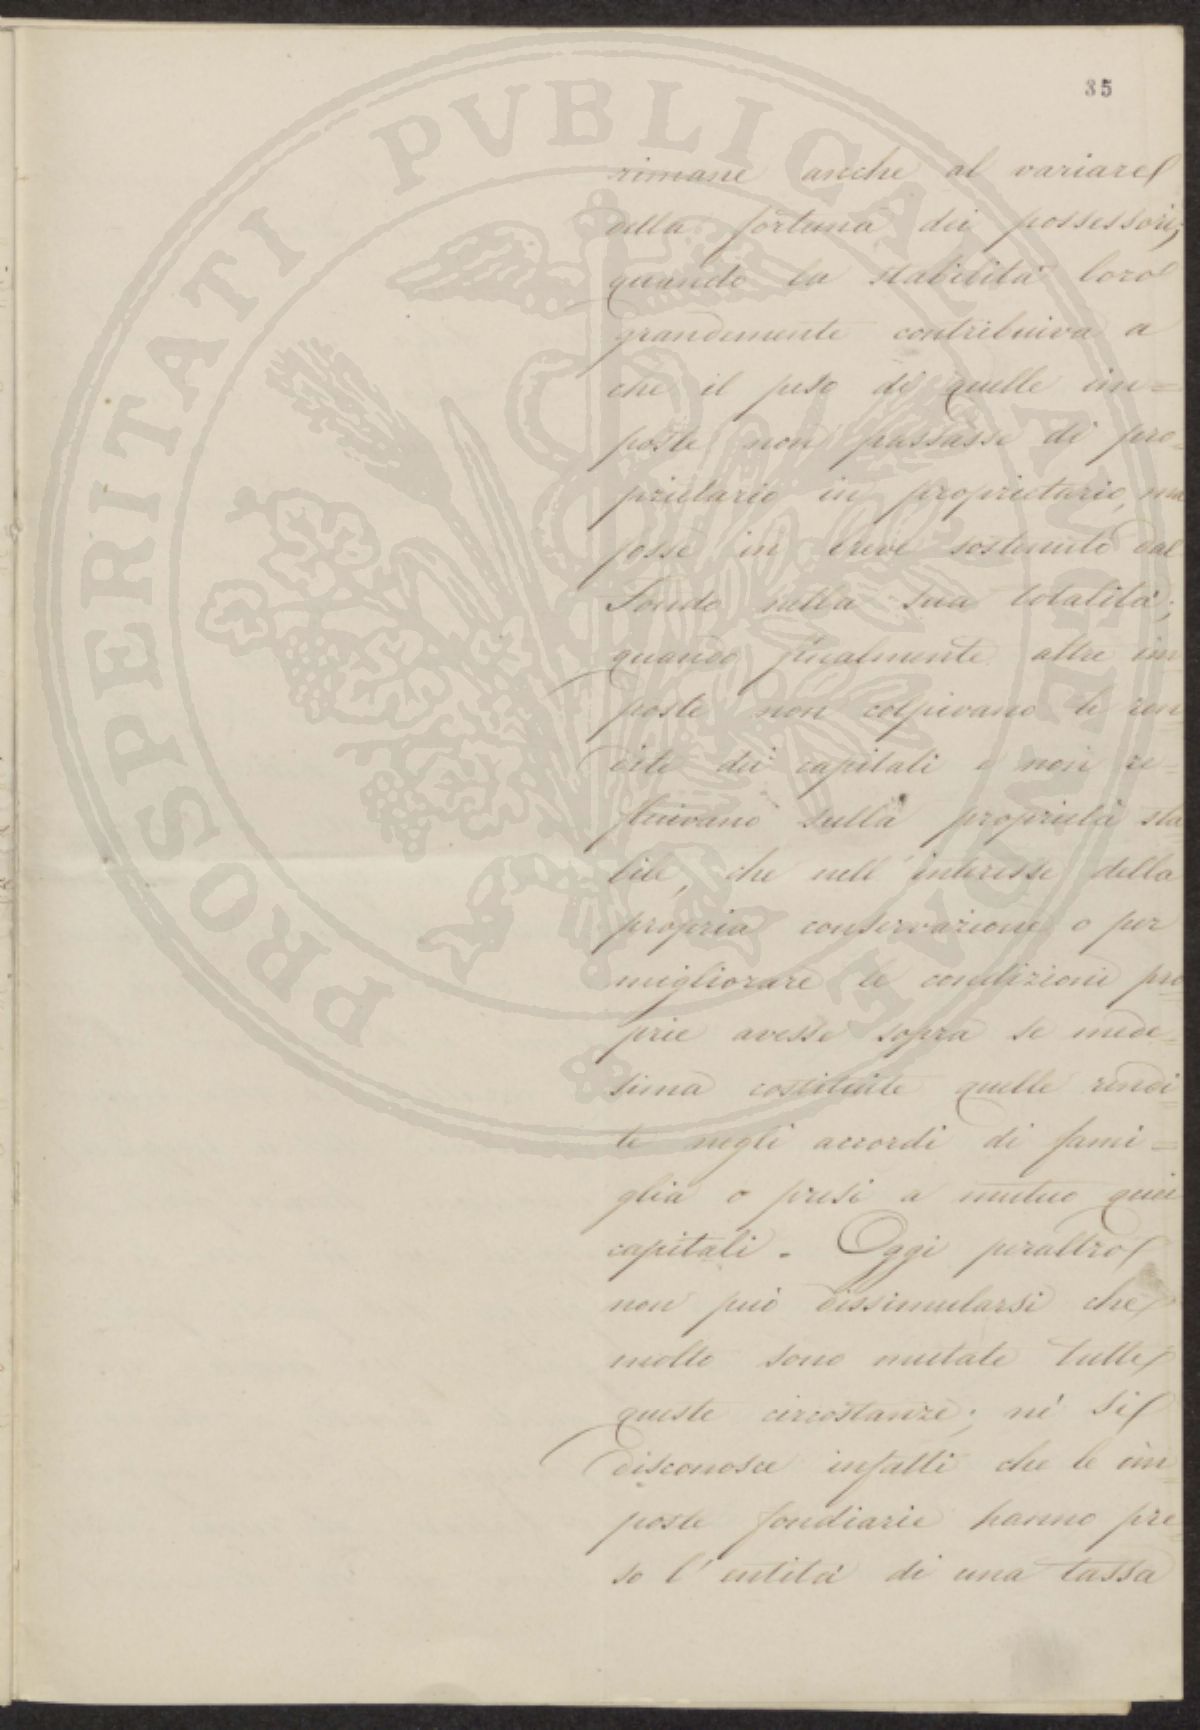 35
rimane anche al variare
della fortuna dei possessori;
quando la stabilità loro
grandemente contribuiva a
che il peso di quelle im=
poste non passasse di pro=
prietario in proprietario, ma
fosse in breve sostenuto dal
Fondo nella sua totalità;
quando finalmente altre im
poste non colpivano le ren
dite dei capitali e non re=
fluivano sulla proprietà sta
bile, che nell'interesse della
propria conservazione o per
migliorare le condizioni pro
prie avesse sopra se mede=
sima costituite quelle rendi=
te negli accordi di fami=
glia o presi a mutuo quei
capitali. Oggi peraltro
non può dissimularsi che
molto sono mutate tutte
queste circostanze; nè si
disconosce infatti che le im=
poste fondiarie hanno pre
so l'entità di una tassa
PROSPERITATI PUBLICAE AUGENDAE